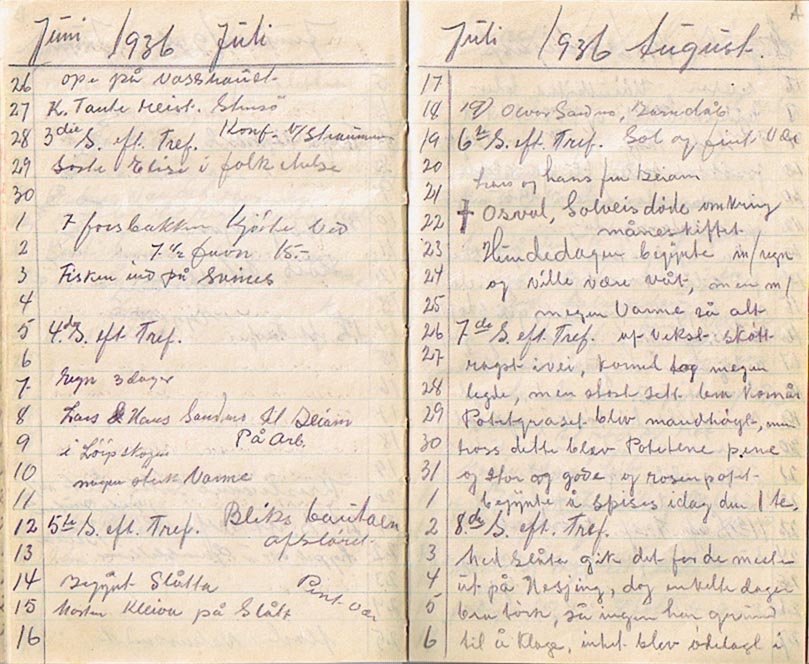 Juni 1936 Juli
26 ope på
27 K. Tante
28 3die S. eft. Tref. Konf.
29 Søste Elise i folk
30
1 7 forsbakken Kjørte ved
2 7 1/2 favn 15.-
3 Fisken ind på
4
5 4de S. eft. Tref.
6
7 Regn 3 dager
8 Lars & Hans Sandnes til Beiarn
9 i På Arb.
10 megen sterk Varme
11
12 5te S. eft. Tref. Bliks bautaen
13 afsløret
14 Begynt Slåtta Pent Vær
15 Morten Kleiva på Slått
16
Juli 1936 August.
17
18
19 6te S. eft. Tref. Sol og fint Vær
20
21 Lars og Hans fra Beiarn
22 † Osval, Solveis døde omkring
måneskiftet
23 Hundedagen begynte m/regn
24 og ville være våt, men m/
25 megen Varme så alt
26 7de S. eft. Tref. av vekst skøtt
27 ragst ivei, kornet tog megen
28 legde, men stort sett bra Kornår
29 Potetgraset blev mandhøgt, men
30 tross dette blev Potetene pene
31 og stor og gode og rosenpotet
1 begynte å spises idag den 1te.
2 8de S. eft. Tref.
3 Med Slåta gik det for de meste
4 ut på Hesjing, dog enkelte dager
5 bra tørk, så ingen har grund
6 til å klage, intet blev ødelagt i